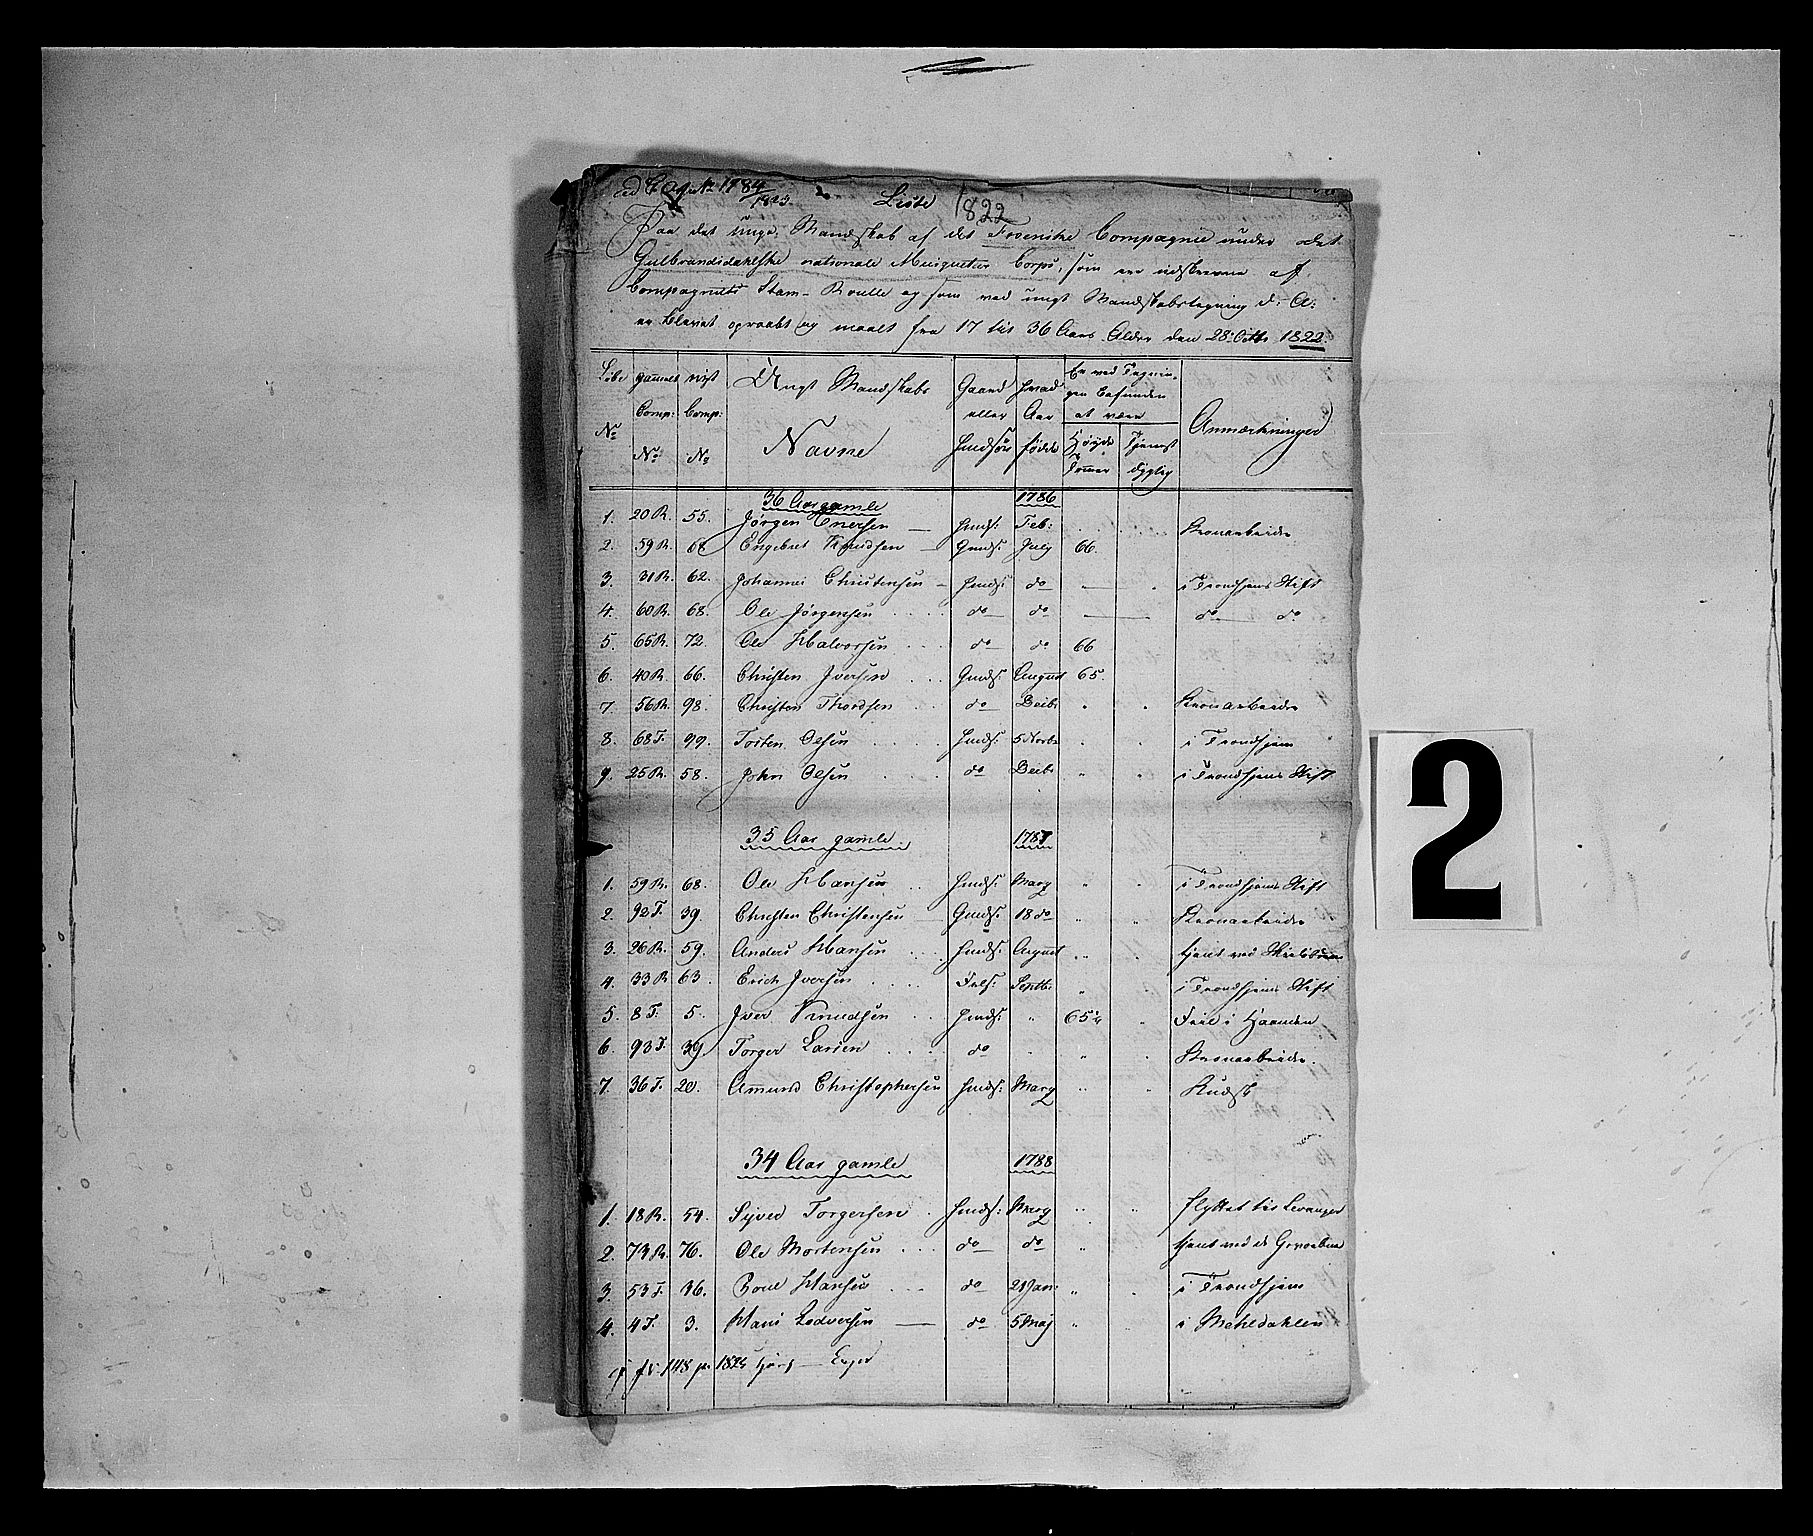 1784
1823
Liste 1822
Paa det unge Mandskab af det Froenske Compagnie under det
Gulbrandsdahlske nationale Musqueteer Corps, som ere udskrevne af
Compagniets Stam-Roulle og som ved ungt Mandskabstegning d: A:
er blevet opraabt og maalt fra 17 til 36 Aars Alder den 28 Octbr 1822.
Løbe No | gammel Comp: No | nyt Comp: No | Ungt Mandskabs Navne | Gaard eller HuusSøn | hvad Aar fødte | Er ved Tegningen befunden at være Høyde Tommer | Tjenestdygtig | Anmærkninger
36 Aar gamle 1786
1. 20 R. 55. Jørgen Enersen — Huuds: Feb: Kronarbeider
2. 59 R. 68 Engebret Knudsen — Gmds: July 66
3. 31 R. 62. Johannes Christensen — Huuds: do i Trondhjems Stift
4. 60 R. 68. Ole Jørgensen do do do do
5. 65 R. 72. Ole Halvorsen do do 66
6. 40 R. 66. Christen Iversen Gmds: August 65.
7. 56 R. 98. Christen Thordsen do Decbr Kronarbeider
8. 68 T. 99. Torsten Olsen Huuds: 5 Novbr i Trondhjem
9. 25 R. 58. John Olsen do Decbr i Trondhjems Stift
35 Aar gamle 1787
1. 59 R. 68. Ole Hansen Huuds: Marg i Trondhjems Stift
2. 92 T. 39. Christen Christensen Gmds: 18 do Kronarbeider
3. 26 R. 59. Anders Hansen Huuds: August tjent ved
4. 33 R 63. Erich Iversen Septbr i Trondhjems Stift
5. 8 T. 5. Iver Knudsen Huuds: " 65 1/4 Feil i Haanden
6. 93 T. 39 Torger Larsen do Kronarbeider
7. 36 T. 20. Amund Christophersen Huuds: Marg Kudsk
34 Aar gamle 1788
1. 18 R. 54. Syver Torgersen Huuds: Marg flyttet til Levanger
2. 73 R. 76. Ole Mortensen do do tjent ved
3. 53 T. 36. Poul Hansen do 21 Jan: i Trondhjem
4. 4 T. 3. Hans Lodversen — do 5 Maj i Mehldahlen
148 p. 1824
2